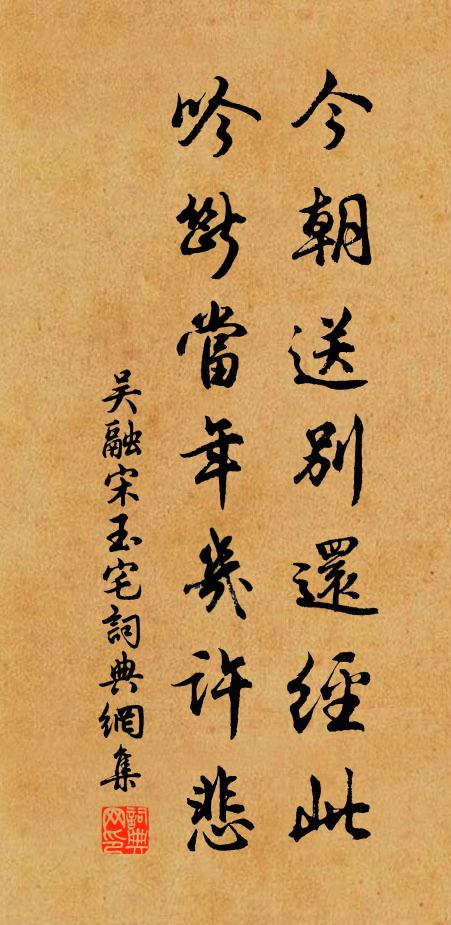 今朝送別還經此
吟斷當年幾許悲
吴融宋玉宅詞典網集
詞典網印